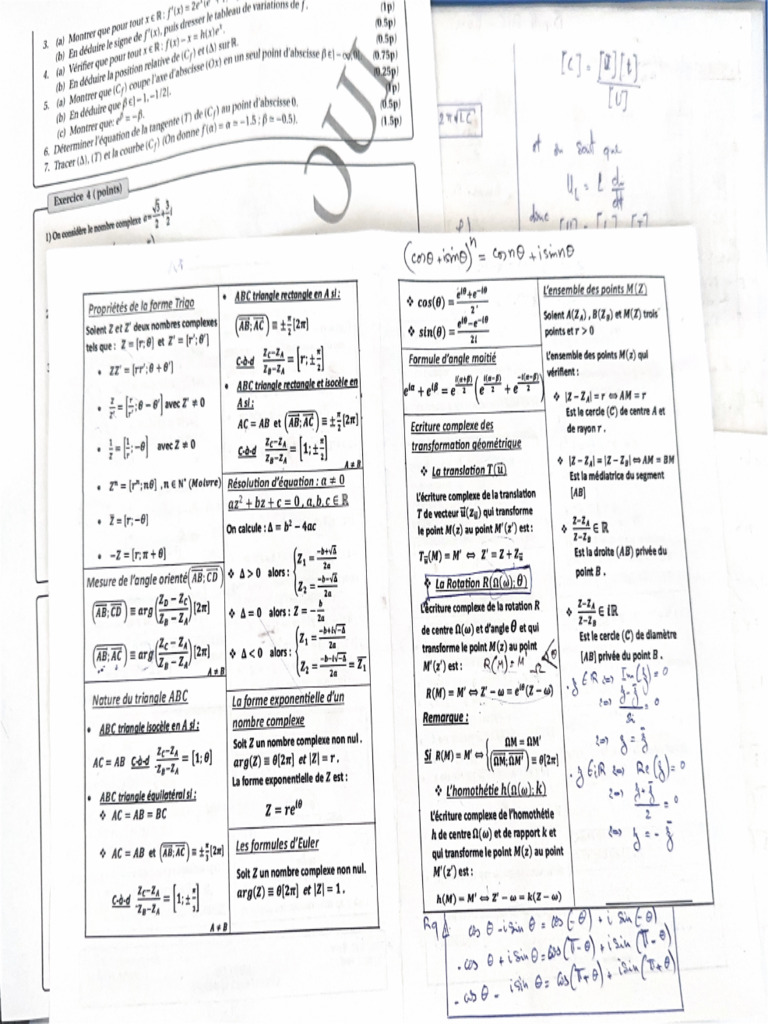 3. (a) Montrer que pour tout x ∈ ℝ : f'(x) = 2e
(1p)
(b) En déduire le signe de f'(x), puis dresser le tableau de variations de f.
(0.5p)
4. (a) Vérifier que pour tout x ∈ ℝ : f(x) − x = h(x)eˣ.
(0.5p)
(b) En déduire la position relative de (C_f) et (Δ) sur ℝ.
(0.75p)
5. (a) Montrer que (C_f) coupe l'axe d'abscisse (Ox) en un seul point d'abscisse β ∈ ] − ∞, 0[.
(0.25p)
(b) En déduire que β ∈] − 1, −1/2[.
(1p)
(c) Montrer que: e^β = −β.
(0.5p)
6. Déterminer l'équation de la tangente (T) de (C_f) au point d'abscisse 0.
7. Tracer (Δ), (T) et la courbe (C_f) (On donne f(α) = α = −1.5 ; β = −0.5).
(1.5p)
OUI
Exercice 4 ( points)
1) On considère le nombre complexe a = √3/2 + 3/2 i
[C] = [U][t]/[U]
2π√LC
et on sait que
U_L = L di/dt
donc
(cosθ + isinθ)ⁿ = cosnθ + isinnθ
Propriétés de la forme Trigo
Soient Z et Z' deux nombres complexes
tels que : Z = [r; θ] et Z' = [r'; θ']
• ZZ' = [rr'; θ + θ']
• Z/Z' = [r/r'; θ − θ'] avec Z' ≠ 0
• 1/Z = [1/r; −θ] avec Z ≠ 0
• Zⁿ = [rⁿ; nθ] , n ∈ N* (Moivre)
• Z̄ = [r; −θ]
• −Z = [r; π + θ]
Mesure de l'angle orienté (AB; CD)
(AB; CD) ≡ arg((Z_D − Z_C)/(Z_B − Z_A)) [2π]
(AB; AC) ≡ arg((Z_C − Z_A)/(Z_B − Z_A)) [2π]
A ≠ B
Nature du triangle ABC
• ABC triangle isocèle en A si :
AC = AB C-à-d (Z_C−Z_A)/(Z_B−Z_A) = [1; θ]
• ABC triangle équilatéral si :
❖ AC = AB = BC
❖ AC = AB et (AB; AC) ≡ ±π/3 [2π]
C-à-d (Z_C−Z_A)/(Z_B−Z_A) = [1; ±π/3]
A ≠ B
• ABC triangle rectangle en A si :
(AB; AC) ≡ ±π/2 [2π]
C-à-d (Z_C−Z_A)/(Z_B−Z_A) = [r; ±π/2]
• ABC triangle rectangle et isocèle en
A si :
AC = AB et (AB; AC) ≡ ±π/2 [2π]
C-à-d (Z_C−Z_A)/(Z_B−Z_A) = [1; ±π/2]
A ≠ B
Résolution d'équation : a ≠ 0
az² + bz + c = 0 , a, b, c ∈ ℝ
On calcule : Δ = b² − 4ac
❖ Δ > 0 alors : { Z₁ = (−b+√Δ)/2a
Z₂ = (−b−√Δ)/2a
❖ Δ = 0 alors : Z = −b/2a
❖ Δ < 0 alors : { Z₁ = (−b+i√−Δ)/2a
Z₂ = (−b−i√−Δ)/2a = Z̄₁
La forme exponentielle d'un
nombre complexe
Soit Z un nombre complexe non nul .
arg(Z) ≡ θ[2π] et |Z| = r .
La forme exponentielle de Z est :
Z = re^iθ
Les formules d'Euler
Soit Z un nombre complexe non nul.
arg(Z) ≡ θ[2π] et |Z| = 1 .
❖ cos(θ) = (e^iθ+e^−iθ)/2
❖ sin(θ) = (e^iθ−e^−iθ)/2i
Formule d'angle moitié
e^iα + e^iβ = e^(i(α+β)/2) (e^(i(α−β)/2) + e^(−i(α−β)/2))
Ecriture complexe des
transformation géométrique
❖ La translation T(u)
L'écriture complexe de la translation
T de vecteur u(z_u) qui transforme
le point M(z) au point M'(z') est :
T_u(M) = M' ⇔ Z' = Z + Z_u
❖ La Rotation R(Ω(ω); θ)
L'écriture complexe de la rotation R
de centre Ω(ω) et d'angle θ et qui
transforme le point M(z) au point
M'(z') est : R(M) = M'
R(M) = M' ⇔ Z' − ω = e^iθ(Z − ω)
Remarque :
Si R(M) = M' ⇔ { ΩM = ΩM'
(ΩM; ΩM') ≡ θ[2π]
❖ L'homothétie h(Ω(ω); k)
L'écriture complexe de l'homothétie
h de centre Ω(ω) et de rapport k et
qui transforme le point M(z) au point
M'(z') est :
h(M) = M' ⇔ Z' − ω = k(Z − ω)
L'ensemble des points M(Z)
Soient A(Z_A) , B(Z_B) et M(Z) trois
points et r > 0
L'ensemble des points M(z) qui
vérifient :
❖ |Z − Z_A| = r ⇔ AM = r
Est le cercle (C) de centre A et
de rayon r .
❖ |Z − Z_A| = |Z − Z_B| ⇔ AM = BM
Est la médiatrice du segment
[AB]
❖ (Z−Z_A)/(Z−Z_B) ∈ ℝ
Est la droite (AB) privée du
point B .
❖ (Z−Z_A)/(Z−Z_B) ∈ iℝ
Est le cercle (C) de diamètre
[AB] privée du point B .
. z ∈ ℝ ⇔ Im(z) = 0
⇔ (z − z̄)/2i = 0
⇔ z = z̄
. z ∈ iℝ ⇔ Re(z) = 0
⇔ (z + z̄)/2 = 0
⇔ z = − z̄
Rq . cos θ − i sin θ = cos(−θ) + i sin(−θ)
. − cos θ + i sin θ = cos(π − θ) + i sin(π − θ)
. − cos θ − i sin θ = cos(π + θ) + i sin(π + θ)